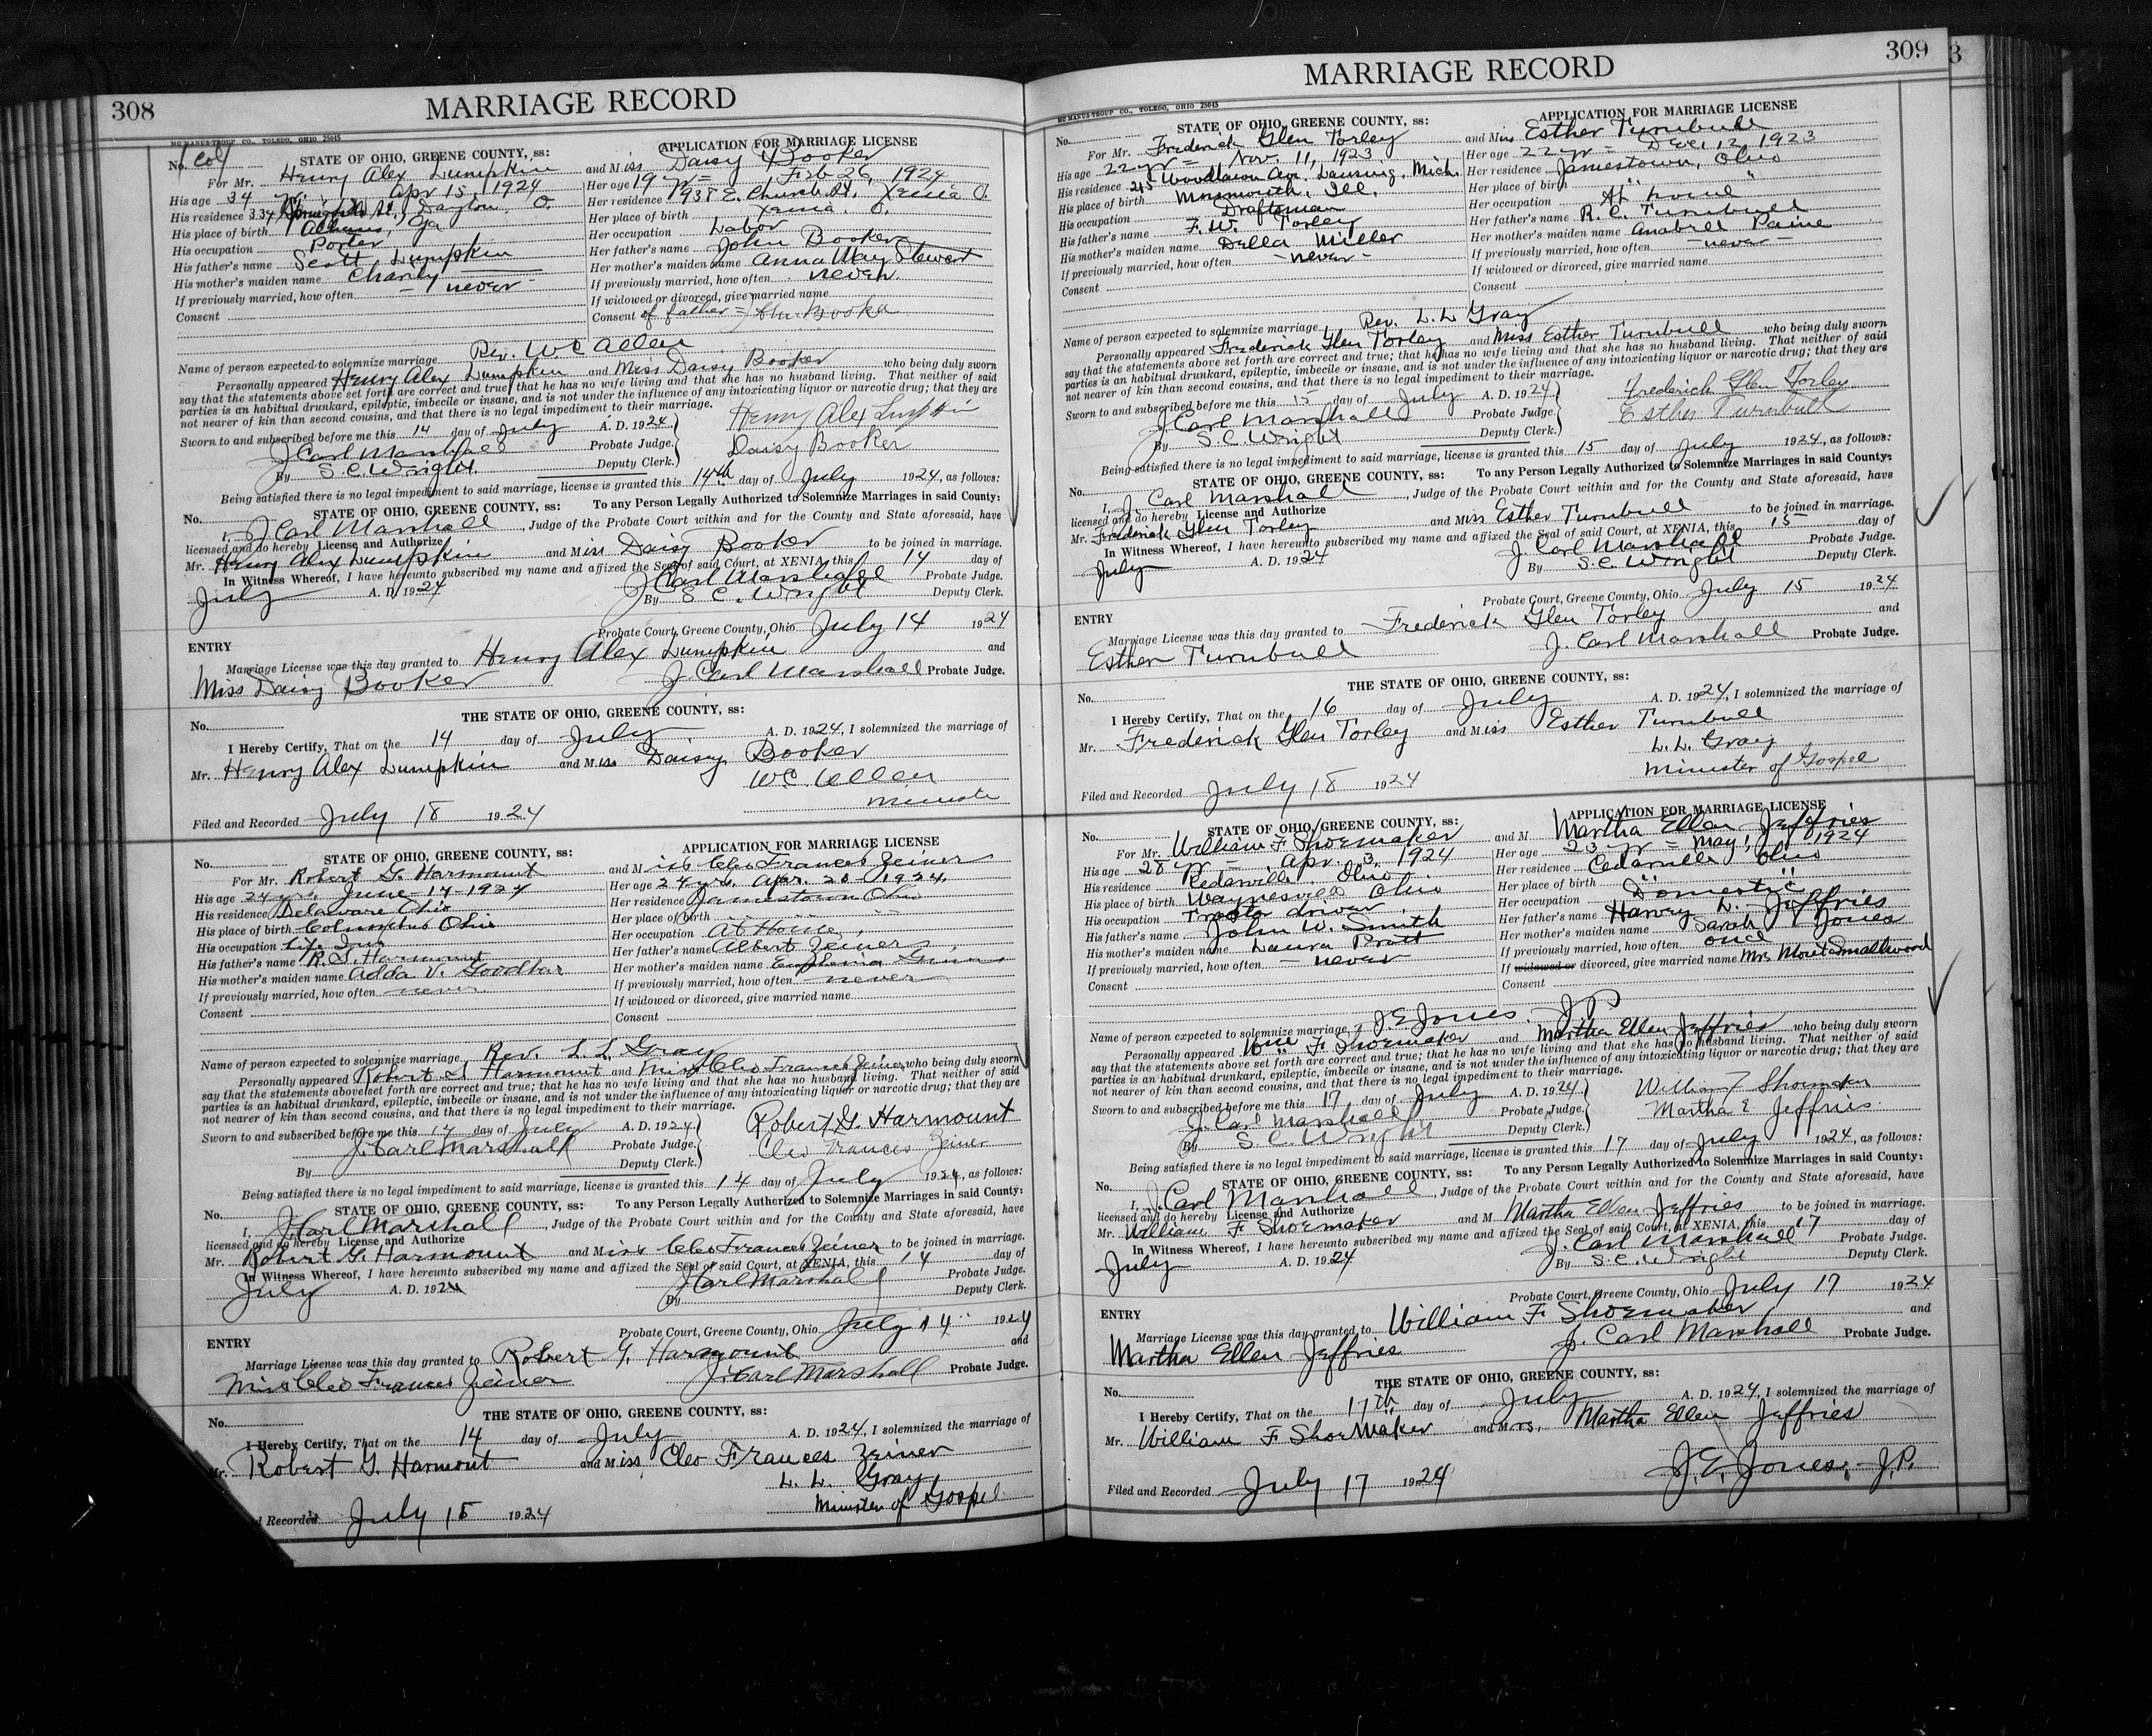 308
MARRIAGE RECORD
MC MANUS-TROUP CO., TOLEDO, OHIO 25045
No. Col
STATE OF OHIO, GREENE COUNTY, ss:
APPLICATION FOR MARRIAGE LICENSE
For Mr. Henry Alex Lumpkin and Miss Daisy Booker
His age 34 yr = Apr 15, 1924
His residence 334 St., Dayton O.
His place of birth Athens, Ga
His occupation Porter
His father's name Scott Lumpkin
His mother's maiden name Charity
If previously married, how often - never -
Consent
Her age 19 yr = Feb 26, 1924
Her residence 938 E. Church St. Xenia O.
Her place of birth Xenia O.
Her occupation Labor
Her father's name John Booker
Her mother's maiden name Anna May Stewart
If previously married, how often never
If widowed or divorced, give married name
Consent of father = John Booker
Name of person expected to solemnize marriage Rev. W C Allen
Personally appeared Henry Alex Lumpkin and Miss Daisy Booker who being duly sworn
say that the statements above set forth are correct and true; that he has no wife living and that she has no husband living. That neither of said
parties is an habitual drunkard, epileptic, imbecile or insane, and is not under the influence of any intoxicating liquor or narcotic drug; that they are
not nearer of kin than second cousins, and that there is no legal impediment to their marriage.
Sworn to and subscribed before me this 14 day of July A. D. 1924 Henry Alex Lumpkin
J Carl Marshall Probate Judge. Daisy Booker
By S. C. Wright. Deputy Clerk.
Being satisfied there is no legal impediment to said marriage, license is granted this 14th day of July 1924, as follows:
No. STATE OF OHIO, GREENE COUNTY, ss: To any Person Legally Authorized to Solemnize Marriages in said County:
I, J Carl Marshall, Judge of the Probate Court within and for the County and State aforesaid, have
licensed and do hereby License and Authorize
Mr. Henry Alex Lumpkin and Miss Daisy Booker to be joined in marriage.
In Witness Whereof, I have hereunto subscribed my name and affixed the Seal of said Court, at XENIA, this 14 day of
July A. D. 1924 J Carl Marshall Probate Judge.
By S C. Wright Deputy Clerk.
Probate Court, Greene County, Ohio July 14 1924
ENTRY
Marriage License was this day granted to Henry Alex Lumpkin and
Miss Daisy Booker J. Carl Marshall Probate Judge.
No. THE STATE OF OHIO, GREENE COUNTY, ss:
I Hereby Certify, That on the 14 day of July A. D. 1924, I solemnized the marriage of
Mr. Henry Alex Lumpkin and Miss Daisy Booker
W C. Allen
Filed and Recorded July 18 1924
No. STATE OF OHIO, GREENE COUNTY, ss:
APPLICATION FOR MARRIAGE LICENSE
For Mr. Robert G. Harmount and Miss Cleo Frances Zeiner
His age 24 yrs. June-14-1924
His residence Delaware Ohio
His place of birth Columbus Ohio
His occupation Life Ins
His father's name R. S. Harmount
His mother's maiden name Adda V. Goodbar
If previously married, how often never
Consent
Her age 24 yrs. Apr. 20 1924
Her residence Jamestown Ohio
Her place of birth " "
Her occupation At Home
Her father's name Albert Zeiner
Her mother's maiden name Euphemia
If previously married, how often never
If widowed or divorced, give married name
Consent
Name of person expected to solemnize marriage Rev. L. L. Gray
Personally appeared Robert G. Harmount and Miss Cleo Frances Zeiner who being duly sworn
say that the statements above set forth are correct and true; that he has no wife living and that she has no husband living. That neither of said
parties is an habitual drunkard, epileptic, imbecile or insane, and is not under the influence of any intoxicating liquor or narcotic drug; that they are
not nearer of kin than second cousins, and that there is no legal impediment to their marriage.
Sworn to and subscribed before me this 14 day of July A. D. 1924 Robert G. Harmount
J. Carl Marshall Probate Judge. Cleo Frances Zeiner
By Deputy Clerk.
Being satisfied there is no legal impediment to said marriage, license is granted this 14 day of July 1924, as follows:
No. STATE OF OHIO, GREENE COUNTY, ss: To any Person Legally Authorized to Solemnize Marriages in said County:
I, J. Carl Marshall, Judge of the Probate Court within and for the County and State aforesaid, have
licensed and do hereby License and Authorize
Mr. Robert G. Harmount and Miss Cleo Frances Zeiner to be joined in marriage.
In Witness Whereof, I have hereunto subscribed my name and affixed the Seal of said Court, at XENIA, this 14 day of
July A. D. 1924 J Carl Marshall Probate Judge.
By Deputy Clerk.
Probate Court, Greene County, Ohio July 14 1924
ENTRY
Marriage License was this day granted to Robert G. Harmount and
Miss Cleo Frances Zeiner J. Carl Marshall Probate Judge.
No. THE STATE OF OHIO, GREENE COUNTY, ss:
I Hereby Certify, That on the 14 day of July A. D. 1924, I solemnized the marriage of
Mr. Robert G. Harmont and Miss Cleo Frances Zeiner
L. L. Gray
Minister of Gospel
d Recorded July 15 1924
309
MARRIAGE RECORD
MC MANUS-TROUP CO., TOLEDO, OHIO 25045
No. STATE OF OHIO, GREENE COUNTY, ss:
APPLICATION FOR MARRIAGE LICENSE
For Mr. Frederick Glen Torley and Miss Esther Turnbull
His age 22 yr = Nov. 11, 1923
His residence 215 Woodlawn Av., Lansing, Mich.
His place of birth Monmouth, Ill.
His occupation Draftsman
His father's name F. W. Torley
His mother's maiden name Della Miller
If previously married, how often - never -
Consent
Her age 22 yr = Dec. 12, 1923
Her residence Jamestown, Ohio
Her place of birth " "
Her occupation At home
Her father's name R. C. Turnbull
Her mother's maiden name Anabell Paine
If previously married, how often - never -
If widowed or divorced, give married name
Consent
Name of person expected to solemnize marriage Rev. L. L Gray
Personally appeared Frederick Glen Torley and Miss Esther Turnbull who being duly sworn
say that the statements above set forth are correct and true; that he has no wife living and that she has no husband living. That neither of said
parties is an habitual drunkard, epileptic, imbecile or insane, and is not under the influence of any intoxicating liquor or narcotic drug; that they are
not nearer of kin than second cousins, and that there is no legal impediment to their marriage.
Sworn to and subscribed before me this 15 day of July A. D. 1924 Frederick Glen Torley
J Carl Marshall Probate Judge. Esther Turnbull
By S. C Wright Deputy Clerk.
Being satisfied there is no legal impediment to said marriage, license is granted this 15 day of July 1924, as follows:
No. STATE OF OHIO, GREENE COUNTY, ss: To any Person Legally Authorized to Solemnize Marriages in said County:
I, J. Carl Marshall, Judge of the Probate Court within and for the County and State aforesaid, have
licensed and do hereby License and Authorize
Mr. Frederick Glen Torley and Miss Esther Turnbull to be joined in marriage.
In Witness Whereof, I have hereunto subscribed my name and affixed the Seal of said Court, at XENIA, this 15 day of
July A. D. 1924 J. Carl Marshall Probate Judge.
By S. C. Wright Deputy Clerk.
Probate Court, Greene County, Ohio July 15 1924
ENTRY
Marriage License was this day granted to Frederick Glen Torley and
Esther Turnbull J. Carl Marshall Probate Judge.
No. THE STATE OF OHIO, GREENE COUNTY, ss:
I Hereby Certify, That on the 16 day of July A. D. 1924, I solemnized the marriage of
Mr. Frederick Glen Torley and Miss Esther Turnbull
L. L. Gray
Minister of Gospel
Filed and Recorded July 18 1924
No. STATE OF OHIO, GREENE COUNTY, ss:
APPLICATION FOR MARRIAGE LICENSE
For Mr. William F. Shoemaker and M Martha Ellen Jeffries
His age 28 yr = Apr. 3, 1924
His residence Cedarville, Ohio
His place of birth Waynesville Ohio
His occupation driver
His father's name John W. Smith
His mother's maiden name Laura Pratt
If previously married, how often - never
Consent
Her age 23 yr = May 1, 1924
Her residence Cedarville Ohio
Her place of birth " "
Her occupation Domestic
Her father's name Harvey L. Jeffries
Her mother's maiden name Sarah Jones
If previously married, how often once
If widowed or divorced, give married name Mrs Smallwood
Consent
Name of person expected to solemnize marriage J E Jones. J P
Personally appeared Wm F. Shoemaker and Martha Ellen Jeffries who being duly sworn
say that the statements above set forth are correct and true; that he has no wife living and that she has no husband living. That neither of said
parties is an habitual drunkard, epileptic, imbecile or insane, and is not under the influence of any intoxicating liquor or narcotic drug; that they are
not nearer of kin than second cousins, and that there is no legal impediment to their marriage.
Sworn to and subscribed before me this 17 day of July A. D. 1924 William F Shoemaker
J. Carl Marshall Probate Judge. Martha E Jeffries.
By S. C. Wright Deputy Clerk.
Being satisfied there is no legal impediment to said marriage, license is granted this 17 day of July 1924, as follows:
No. STATE OF OHIO, GREENE COUNTY, ss: To any Person Legally Authorized to Solemnize Marriages in said County:
I, J. Carl Marshall, Judge of the Probate Court within and for the County and State aforesaid, have
licensed and do hereby License and Authorize
Mr. William F Shoemaker and M Martha Ellen Jeffries to be joined in marriage.
In Witness Whereof, I have hereunto subscribed my name and affixed the Seal of said Court, at XENIA, this 17 day of
July A. D. 1924 J. Carl Marshall Probate Judge.
By S. C. Wright Deputy Clerk.
Probate Court, Greene County, Ohio July 17 1924
ENTRY
Marriage License was this day granted to William F. Shoemaker and
Martha Ellen Jeffries J. Carl Marshall Probate Judge.
No. THE STATE OF OHIO, GREENE COUNTY, ss:
I Hereby Certify, That on the 17th day of July A. D. 1924, I solemnized the marriage of
Mr. William F Shoemaker and Mrs. Martha Ellen Jeffries
J. E. Jones, J.P.
Filed and Recorded July 17 1924